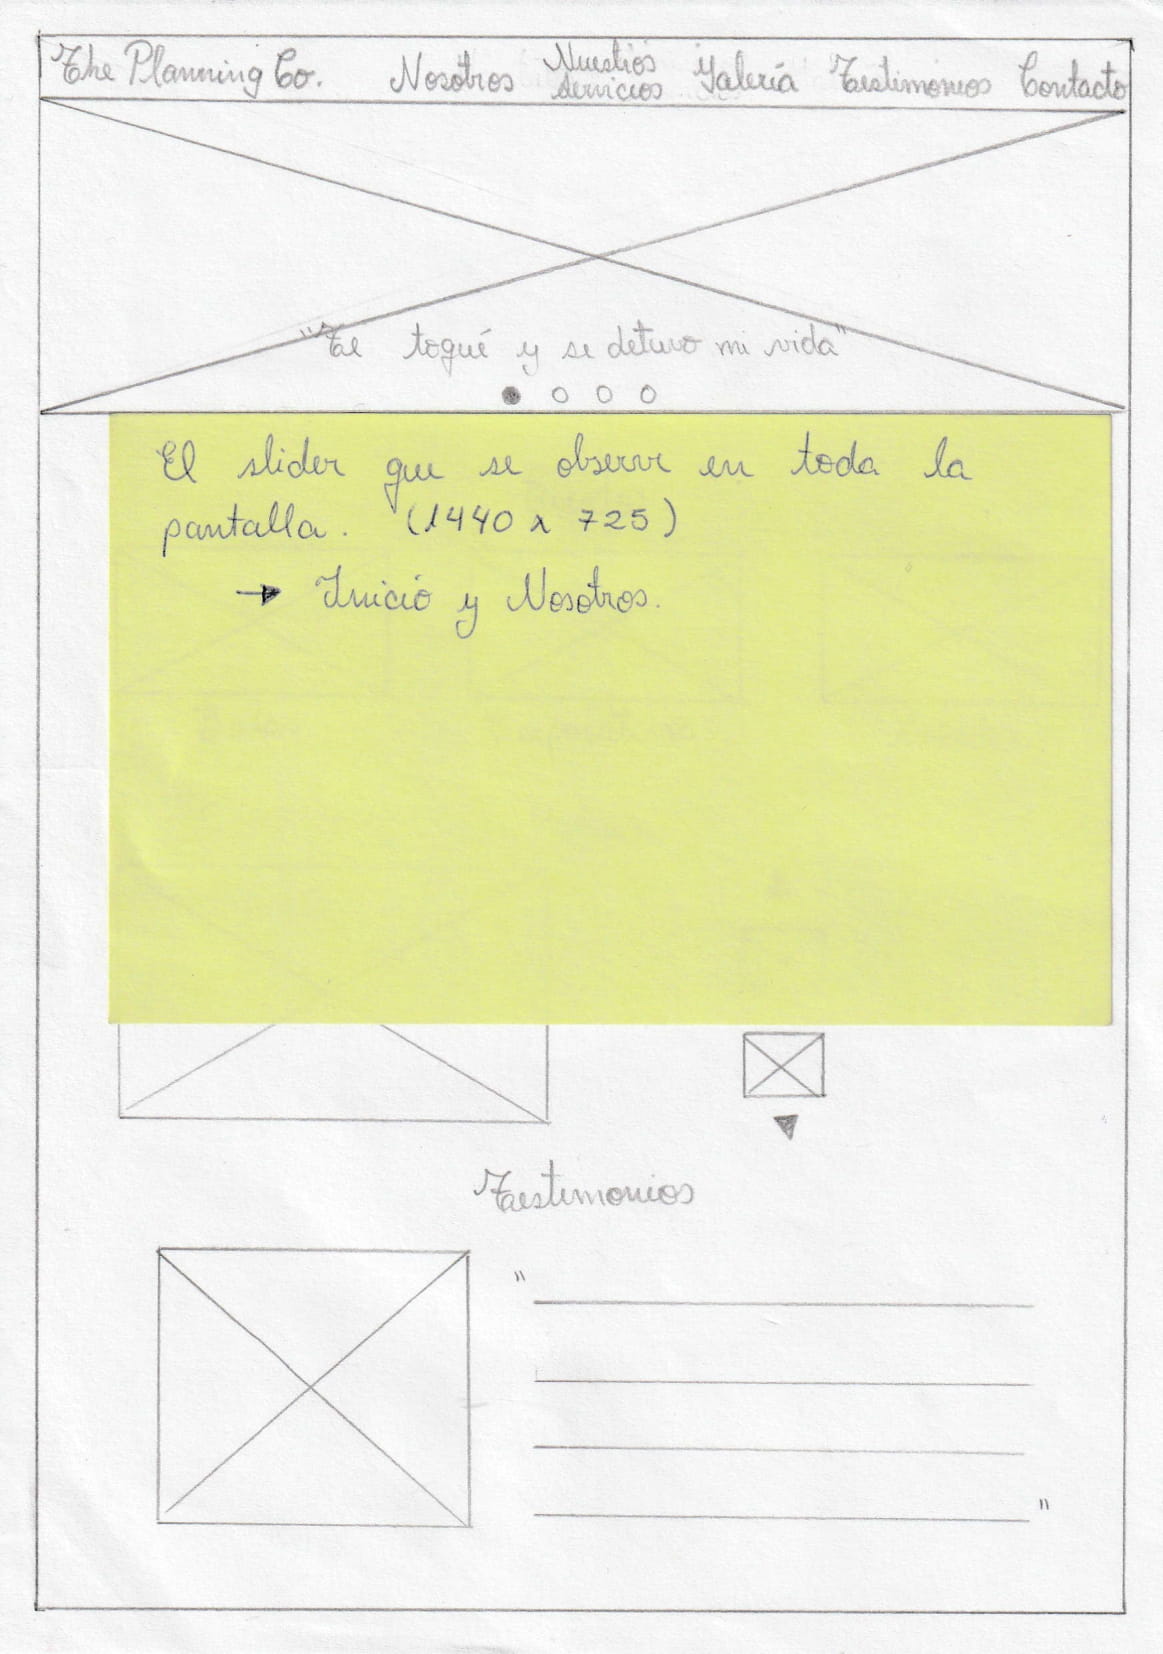 The Planning Co. Nosotros Nuestros servicios Galería Testimonios Contacto
"Te toqué y se detuvo mi vida"
El slider que se observe en toda la
pantalla. (1440 x 725)
→ Inicio y Nosotros.
Testimonios
"
"